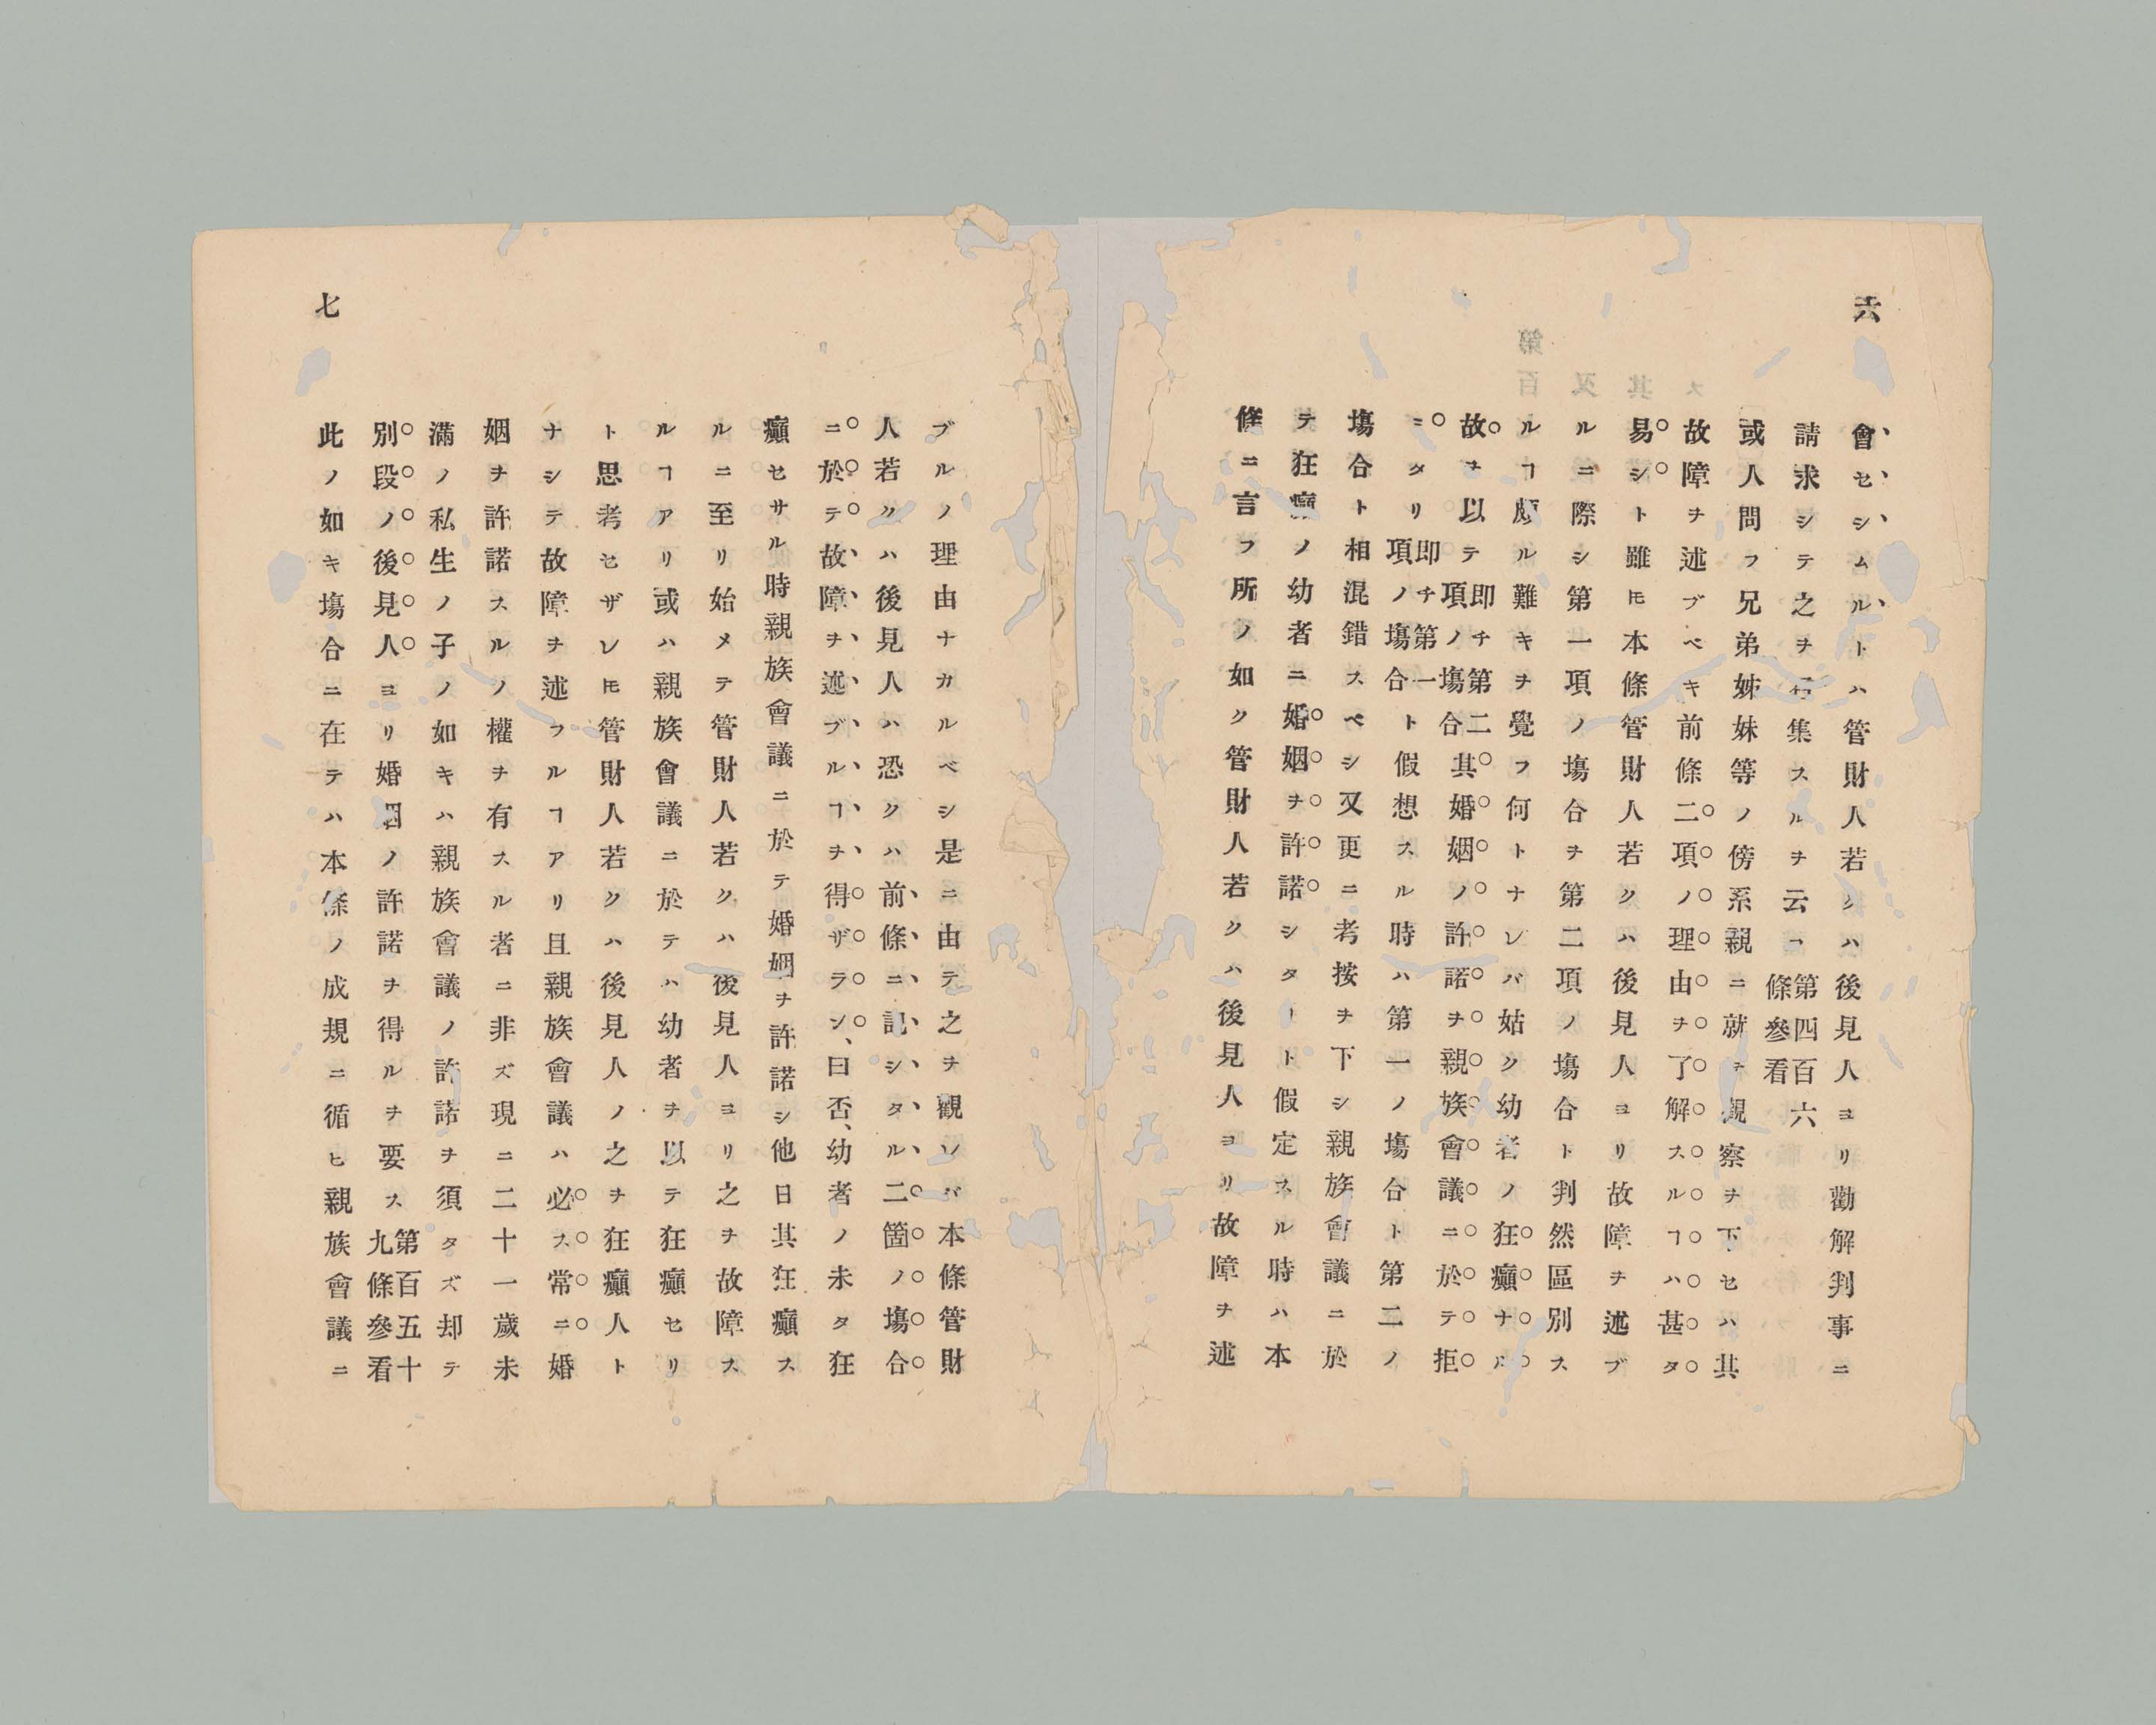 六
會セシムルトハ管財人若クハ後見人ヨリ勸解判事ニ
請求シテ之ヲ召集スルヲ云フ 第四百六條參看
或人問フ兄弟姊妹等ノ傍系親ニ就テ觀察ヲ下セハ其
故障ヲ述ブベキ前條二項ノ理由ヲ了解スルヿハ甚タ
易シト雖𪜈本條管財人若クハ後見人ヨリ故障ヲ述ブ
ルニ際シ第一項ノ塲合ヲ第二項ノ塲合ト判然區別ス
ルヿ頗ル難キヲ覺フ何トナレバ姑ク幼者ノ狂癲ナル
故ヲ以テ 即チ第二項ノ塲合 其婚姻ノ許諾ヲ親族會議ニ於テ拒
ミタリ 即チ第一項ノ塲合 ト假想スル時ハ第一ノ塲合ト第二ノ
塲合ト相混錯スベシ又更ニ考按ヲ下シ親族會議ニ於
テ狂癲ノ幼者ニ婚姻ヲ許諾シタリト假定スル時ハ本
條ニ言フ所ノ如ク管財人若クハ後見人ヨリ故障ヲ述
ブルノ理由ナカルベシ是ニ由テ之ヲ觀レバ本條管財
人若クハ後見人ハ恐クハ前條ニ記シタル二箇ノ塲合
ニ於テ故障ヲ述ブルヿヲ得ザラン、曰否、幼者ノ未タ狂
癲セサル時親族會議ニ於テ婚姻ヲ許諾シ他日其狂癲ス
ルニ至リ始メテ管財人若クハ後見人ヨリ之ヲ故障ス
ルヿアリ或ハ親族會議ニ於テハ幼者ヲ以テ狂癲セリ
ト思考セザレ𪜈管財人若クハ後見人ノ之ヲ狂癲人ト
ナシテ故障ヲ述フルヿアリ且親族會議ハ必ス常ニ婚
姻ヲ許諾スルノ權ヲ有スル者ニ非ズ現ニ二十一歲未
滿ノ私生ノ子ノ如キハ親族會議ノ許諾ヲ須タズ却テ
別段ノ後見人ヨリ婚姻ノ許諾ヲ得ルヲ要ス 第百五十九條參看
此ノ如キ塲合ニ在テハ本條ノ成規ニ循ヒ親族會議ニ
七